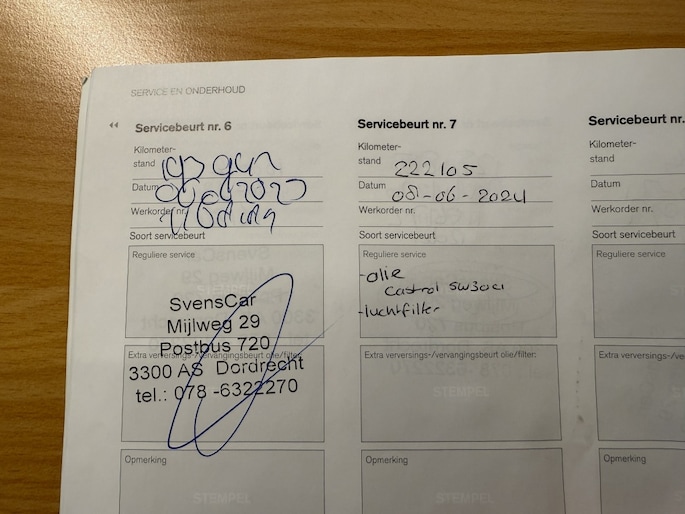 SERVICE EN ONDERHOUD
Servicebeurt nr. 6
Kilometer-
stand
Datum
Werkorder nr.
Soort servicebeurt
Reguliere service
SvensCar
Mijlweg 29
Postbus 720
Extra verversings-/vervangingsbeurt olie/filter:
3300 AS Dordrecht
tel.: 078 -6322270
Opmerking
STEMPEL
Servicebeurt nr. 7
Kilometer-
stand 222105
Datum 08-06-2024
Werkorder nr.
Soort servicebeurt
Reguliere service
-olie
Castrol 5W30
-luchtfilter
Extra verversings-/vervangingsbeurt olie/filter:
STEMPEL
Opmerking
STEMPEL
Servicebeurt nr.
Kilometer-
stand
Datum
Werkorder nr.
Soort servicebeurt
Reguliere service
Extra verversings-/ve
Opmerking